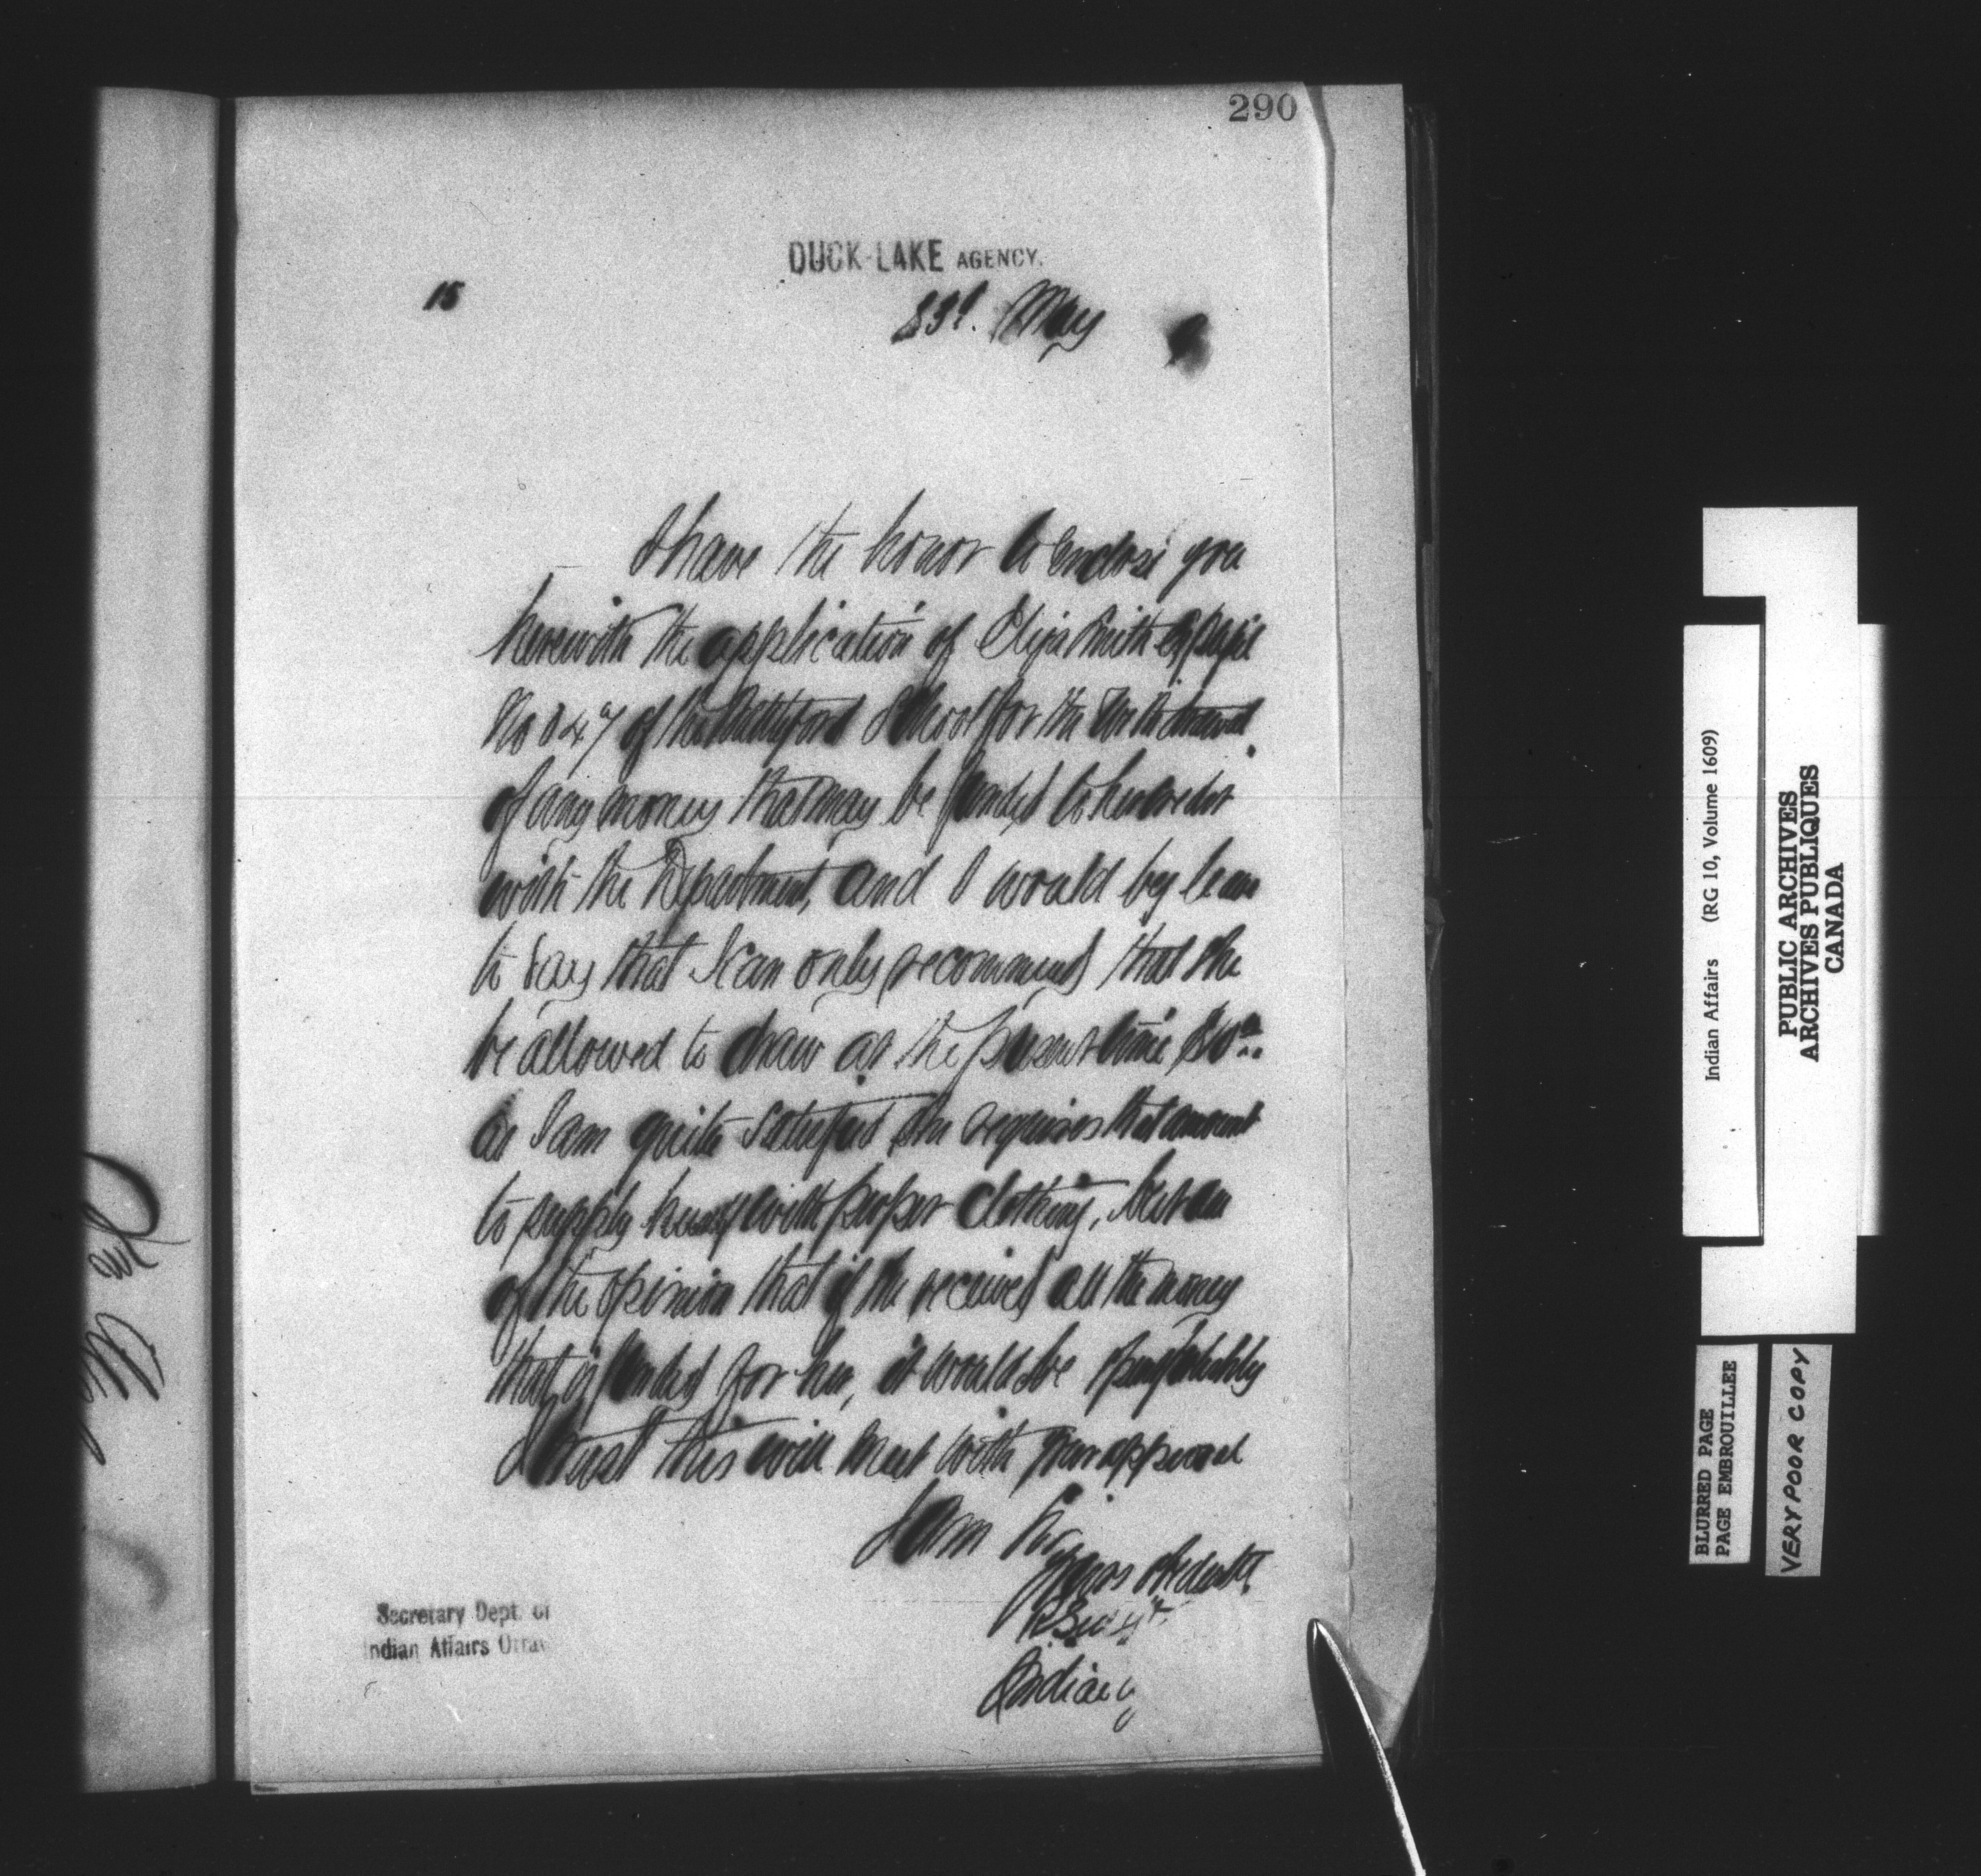 290
DUCK-LAKE AGENCY.
15
23d. May
I have the honor to enclose you
herewith the application of Eliza Smith Ex pupil
No 047 of the Battleford School for the withdrawal
of any money that may be funded to her credit
with the Department, and I would beg leave
to say that I can only recommend that she
be allowed to draw at the present time
as I am quite satisfied she requires that amount
to supply herself with proper clothing, but am
of the opinion that if she received all the money
that is funded for her, it would be
I trust this will meet with your approval
I am Sir
Your obedient
Indian
Secretary Dept. of
Indian Affairs Ottaw
Indian Affairs (RG 10, Volume 1609)
PUBLIC ARCHIVES
ARCHIVES PUBLIQUES
CANADA
BLURRED PAGE
PAGE EMBROUILLEE
VERY POOR COPY